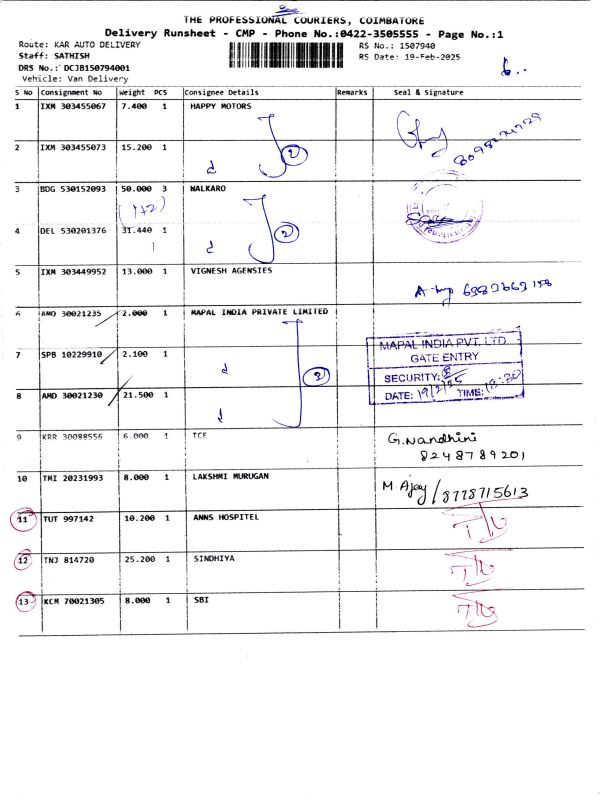 THE PROFESSIONAL COURIERS, COIMBATORE
Delivery Runsheet - CMP - Phone No.:0422-3505555 - Page No.:1
Route: KAR AUTO DELIVERY
RS No.: 1507940
Staff: SATHISH
RS Date: 19-Feb-2025
DRS No.: DCJB150794001
Vehicle: Van Delivery
S No Consignment No Weight PCS Consignee Details Remarks Seal & Signature
1 IXM 303455067 7.400 1 HAPPY MOTORS
2 IXM 303455073 15.200 1
2
3 BDG 530152093 50.000 3 WALKARO
(1+2)
4 DEL 530201376 31.440 1
1
2
5 IXM 303449952 13.000 1 VIGNESH AGENSIES
6 AMD 30021235 2.000 1 MAPAL INDIA PRIVATE LIMITED
MAPAL INDIA PVT. LTD.
GATE ENTRY
7 SPB 10229910 2.100 1
SECURITY:
8 AMD 30021230 21.500 1
DATE: 19/2/25 TIME: 18:30
9 KRR 30088556 6.000 1 TCE G.Nandhini
8248789201
10 TMI 20231993 8.000 1 LAKSHMI MURUGAN M Ajay / 8778715613
11 TUT 997142 10.200 1 ANNS HOSPITEL
12 TNJ 814720 25.200 1 SINDHIYA
13 KCM 70021305 8.000 1 SBI